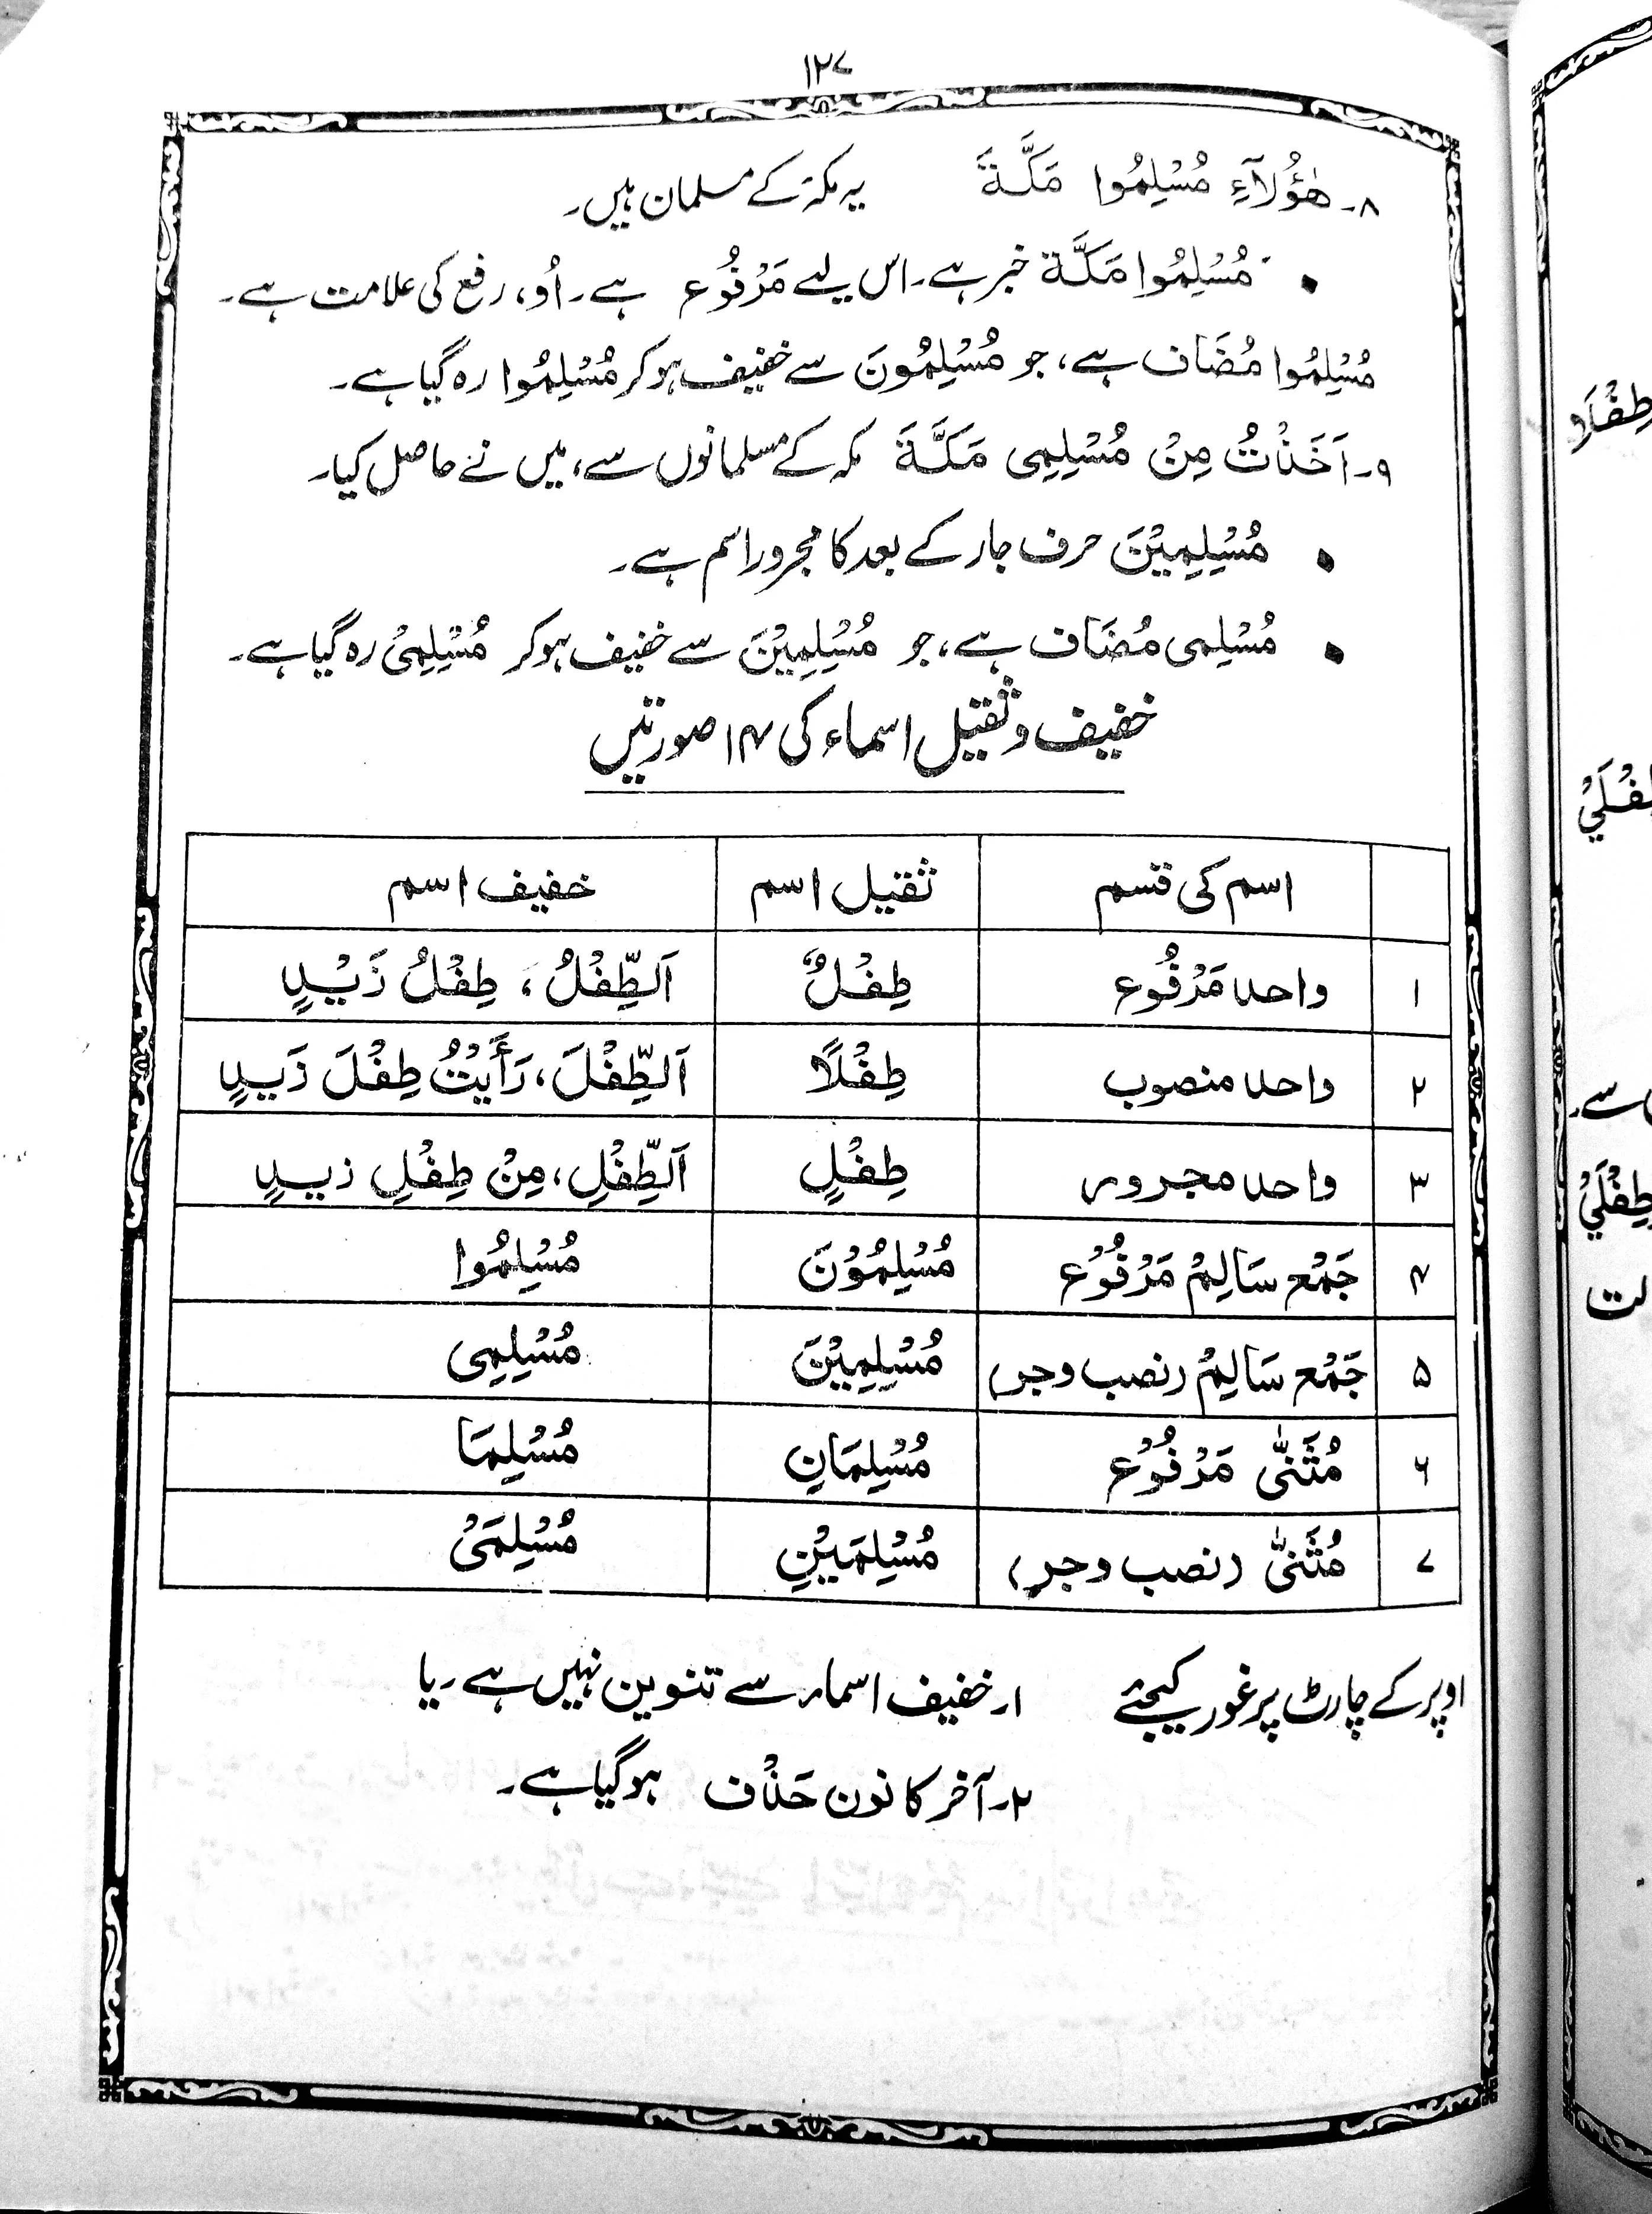 ۱۲۷
۸۔ هٰؤُلَآءِ مُسْلِمُوا مَكَّةَ یہ مکہ کے مسلمان ہیں۔
• مُسْلِمُوا مَكَّة خبر ہے۔ اس لیے مَرْفُوع ہے۔ اُو، رفع کی علامت ہے۔
مُسْلِمُوا مُضَاف ہے، جو مُسْلِمُونَ سے خفیف ہو کر مُسْلِمُوا رہ گیا ہے۔
۹۔ اَخَذْتُ مِنْ مُسْلِمِی مَكَّةَ مکہ کے مسلمانوں سے، میں نے حاصل کیا۔
• مُسْلِمِيْنَ حرف جار کے بعد کا مجرور اسم ہے۔
• مُسْلِمی مُضَاف ہے، جو مُسْلِمِيْنَ سے خفیف ہو کر مُسْلِمِیْ رہ گیا ہے۔
خفیف و ثقیل اسماء کی ۱۴ صورتیں
اسم کی قسم ثقیل اسم خفیف اسم
۱ واحد مَرْفُوع طِفْلٌ اَلطِّفْلُ، طِفْلُ زَيْدٍ
۲ واحد منصوب طِفْلًا اَلطِّفْلَ، رَأَيْتُ طِفْلَ زَيدٍ
۳ واحد مجرور طِفْلٍ اَلطِّفْلِ، مِنْ طِفْلِ زیدٍ
۴ جَمْع سَالِمْ مَرْفُوْع مُسْلِمُوْنَ مُسْلِمُوا
۵ جَمْع سَالِمْ (نصب و جر) مُسْلِمِيْنَ مُسْلِمِی
۶ مُثَنّٰی مَرْفُوْع مُسْلِمَانِ مُسْلِمَا
۷ مُثَنّٰی (نصب و جر) مُسْلِمَيْنِ مُسْلِمَیْ
اوپر کے چارٹ پر غور کیجئے ۱۔ خفیف اسماء سے تنوین نہیں ہے۔ یا
۲۔ آخر کا نون حَذْف ہو گیا ہے۔
طِفْلَا
طِفْلَيْ
سے۔
طِفْلَيْ